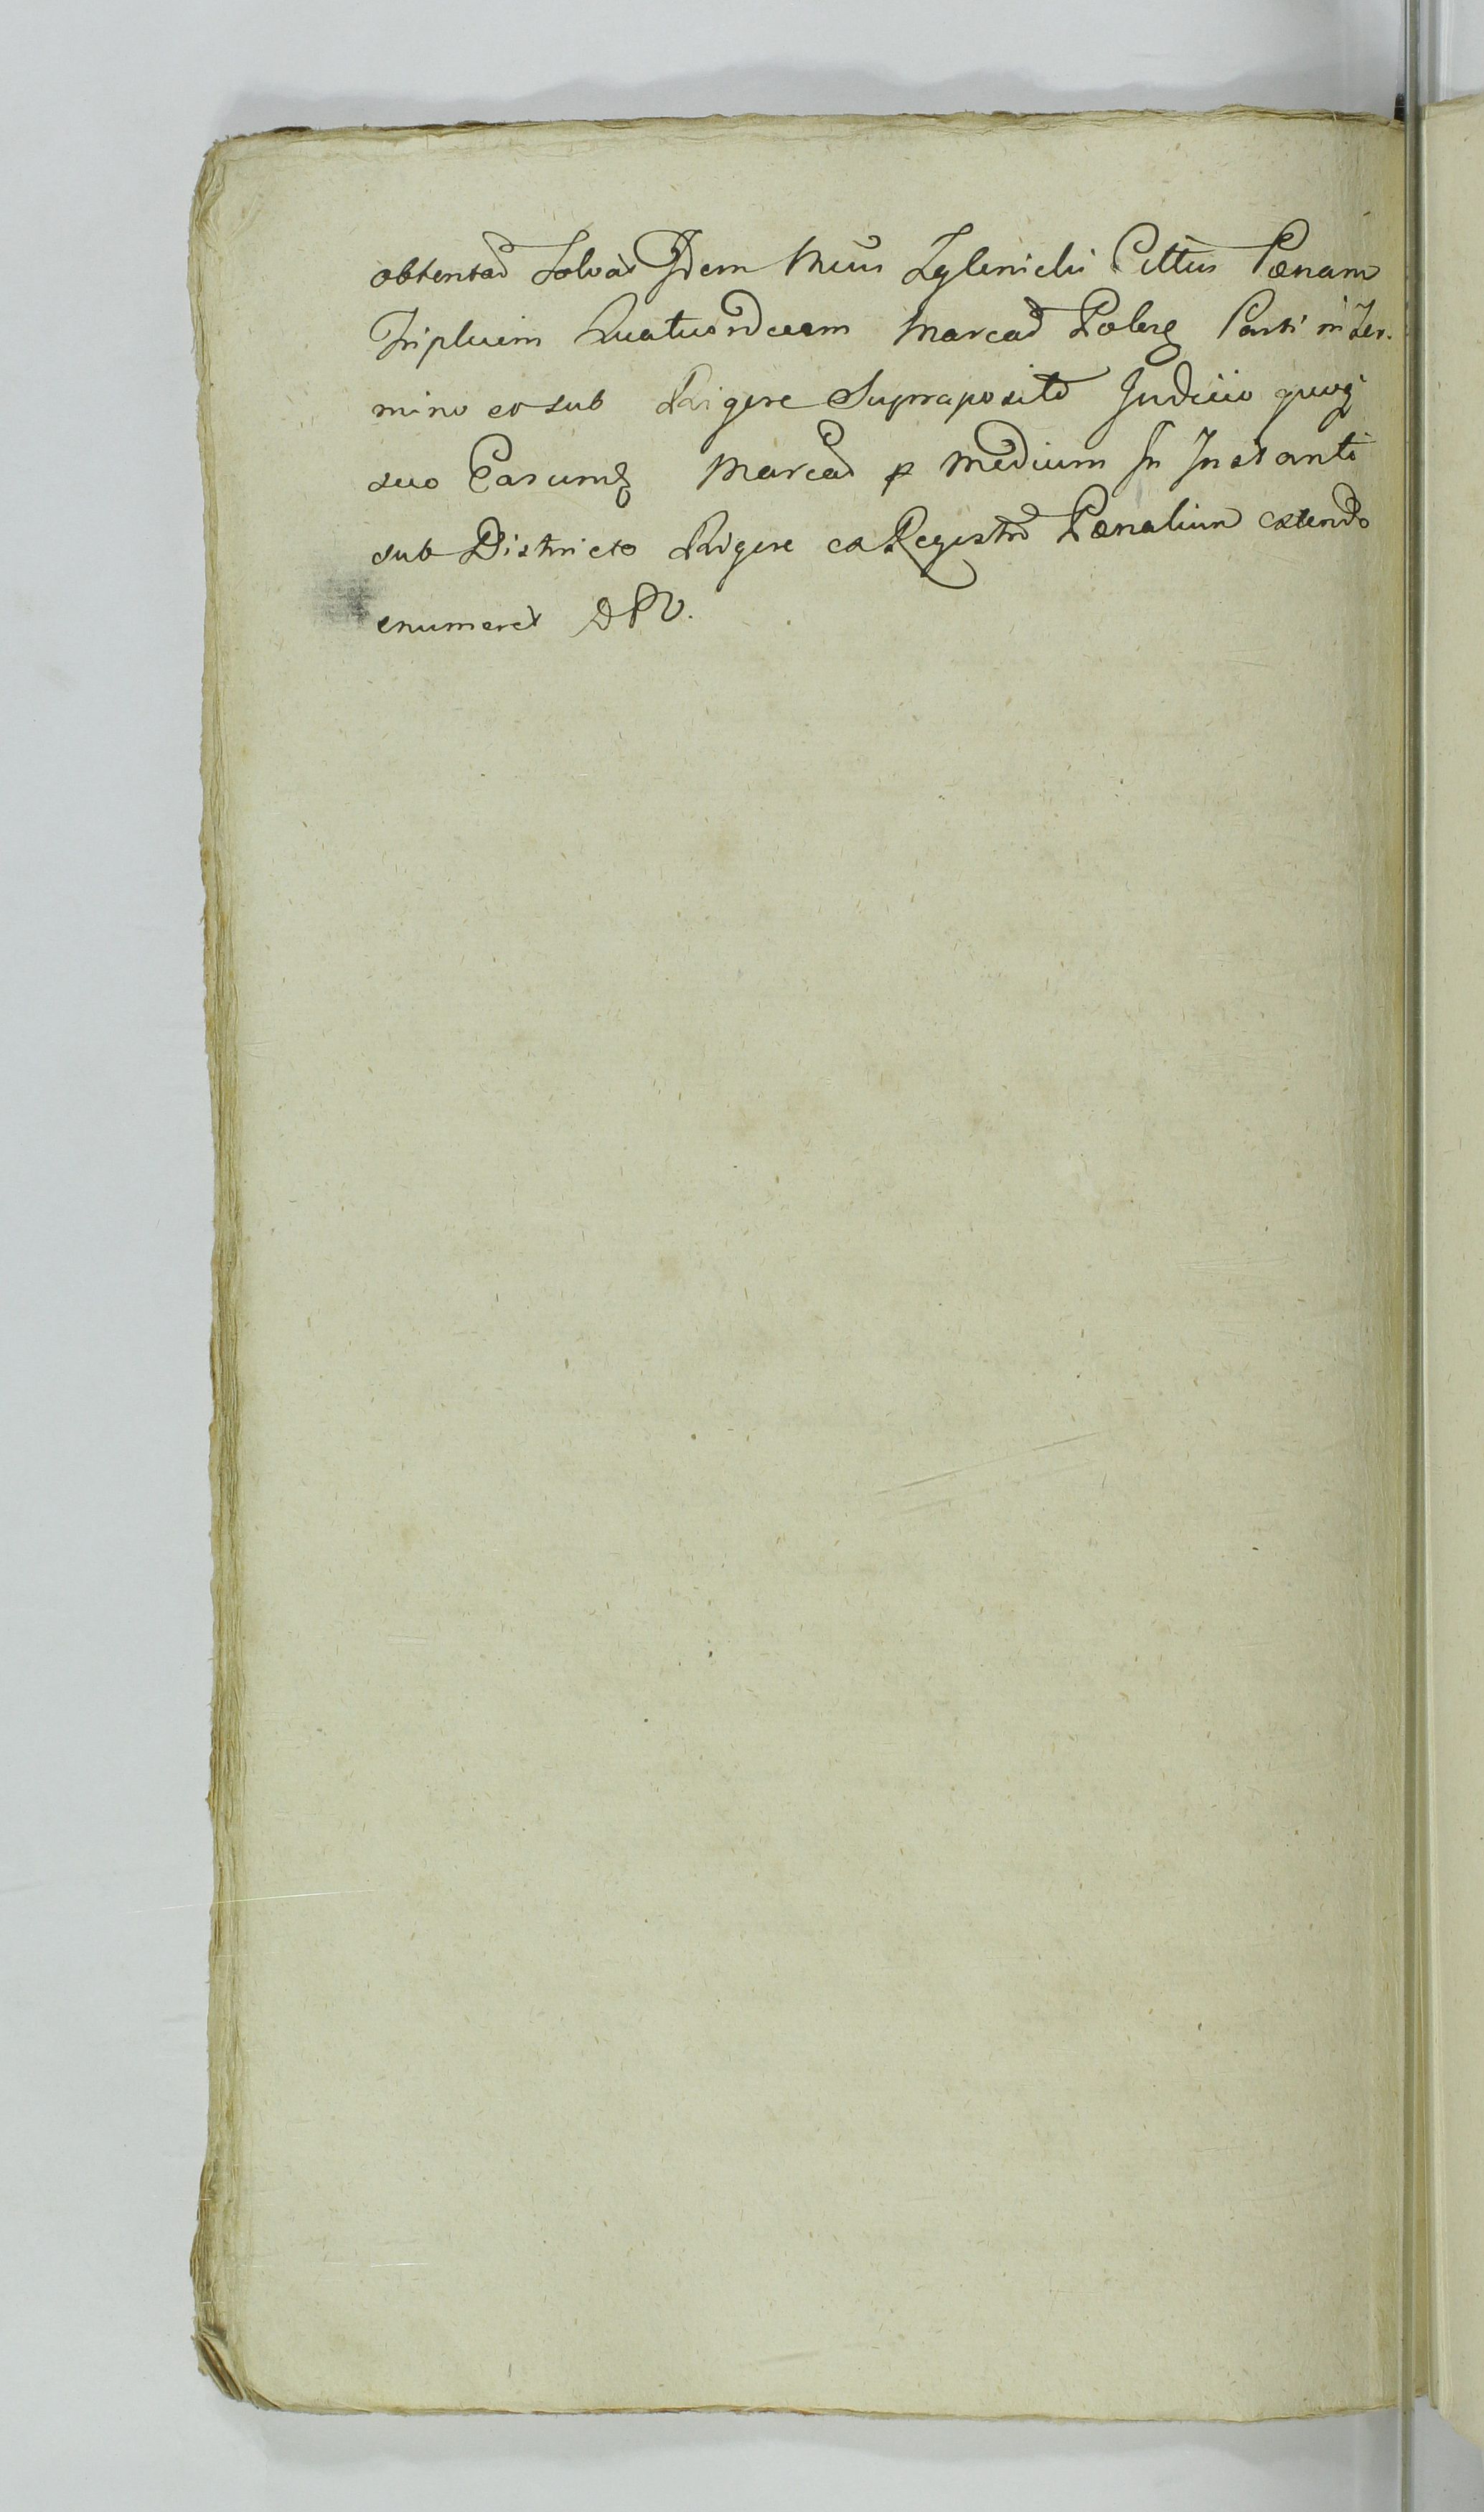 obtentas Solvat Idem Mcus Zglenicki Cittus Pœnam
Triplicem Quatuordecem Marcas Polorę Parti in Ter-
mino eo sub Rigore Supraposito Judicio quoq
suo Earumq Marcas p Medium In Instanti
sub Districto Rigore ex Registro Pœnalium extendo
enumeret DPV.